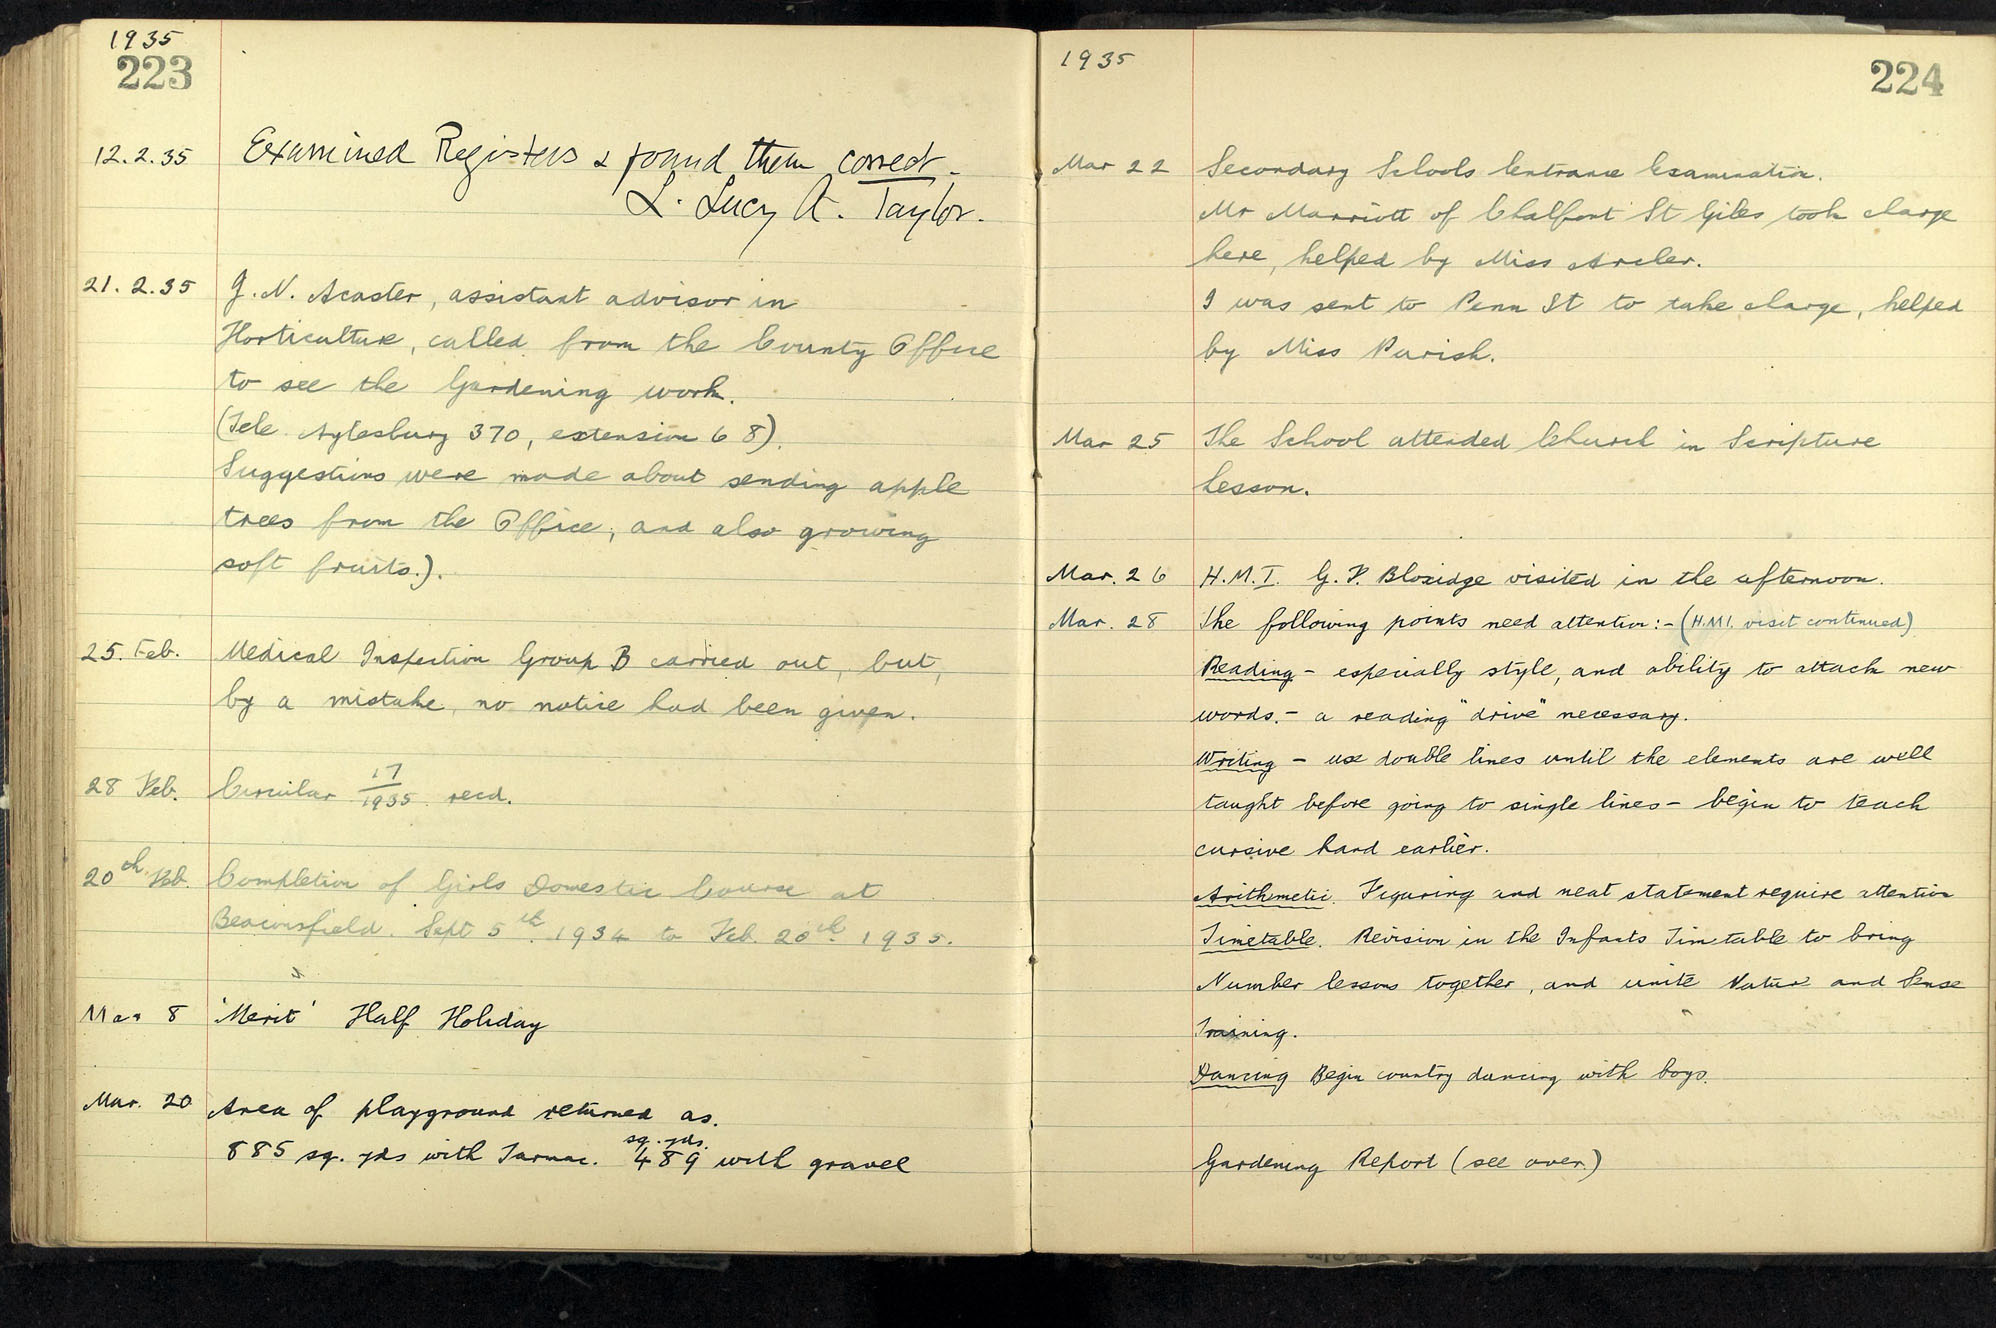 1935
223
12.2.35 Examined Registers & found them correct.
L. Lucy A. Taylor.
21.2.35 J. N. Acaster, assistant advisor in
Horticulture, called from the County Office
to see the Gardening work.
(Tele Aylesbury 370, extension 68).
Suggestions were made about sending apple
trees from the Office, and also growing
soft fruits.).
25. Feb. Medical Inspection Group B carried out, but,
by a mistake, no notice had been given.
28 Feb. Circular 17/1935 recd.
20th Feb. Completion of Girls Domestic Course at
Beaconsfield. Sept 5th 1934 to Feb. 20th 1935.
Mar 8 'Merit' Half Holiday
Mar. 20 Area of playground returned as.
sq. yds.
885 sq. yds with Tarmac. 489 with gravel
1935
224
Mar 22 Secondary Schools Entrance Examination.
Mr Marriott of Chalfont St Giles took charge
here, helped by Miss Archer.
I was sent to Penn St to take charge, helped
by Miss Parish.
Mar 25 The School attended Church in Scripture
Lesson.
Mar. 26 H.M.I. G. F. Bloxidge visited in the afternoon.
Mar. 28 The following points need attention:- (H.M.I. visit continued)
Reading - especially style, and ability to attack new
words. - a reading "drive" necessary.
Writing - use double lines until the elements are well
taught before going to single lines - begin to teach
cursive hand earlier.
Arithmetic. Figuring and neat statement require attention
Timetable. Revision in the Infants Timetable to bring
Number lessons together, and unite Nature and Sense
Training.
Dancing Begin country dancing with boys.
Gardening Report (see over.)